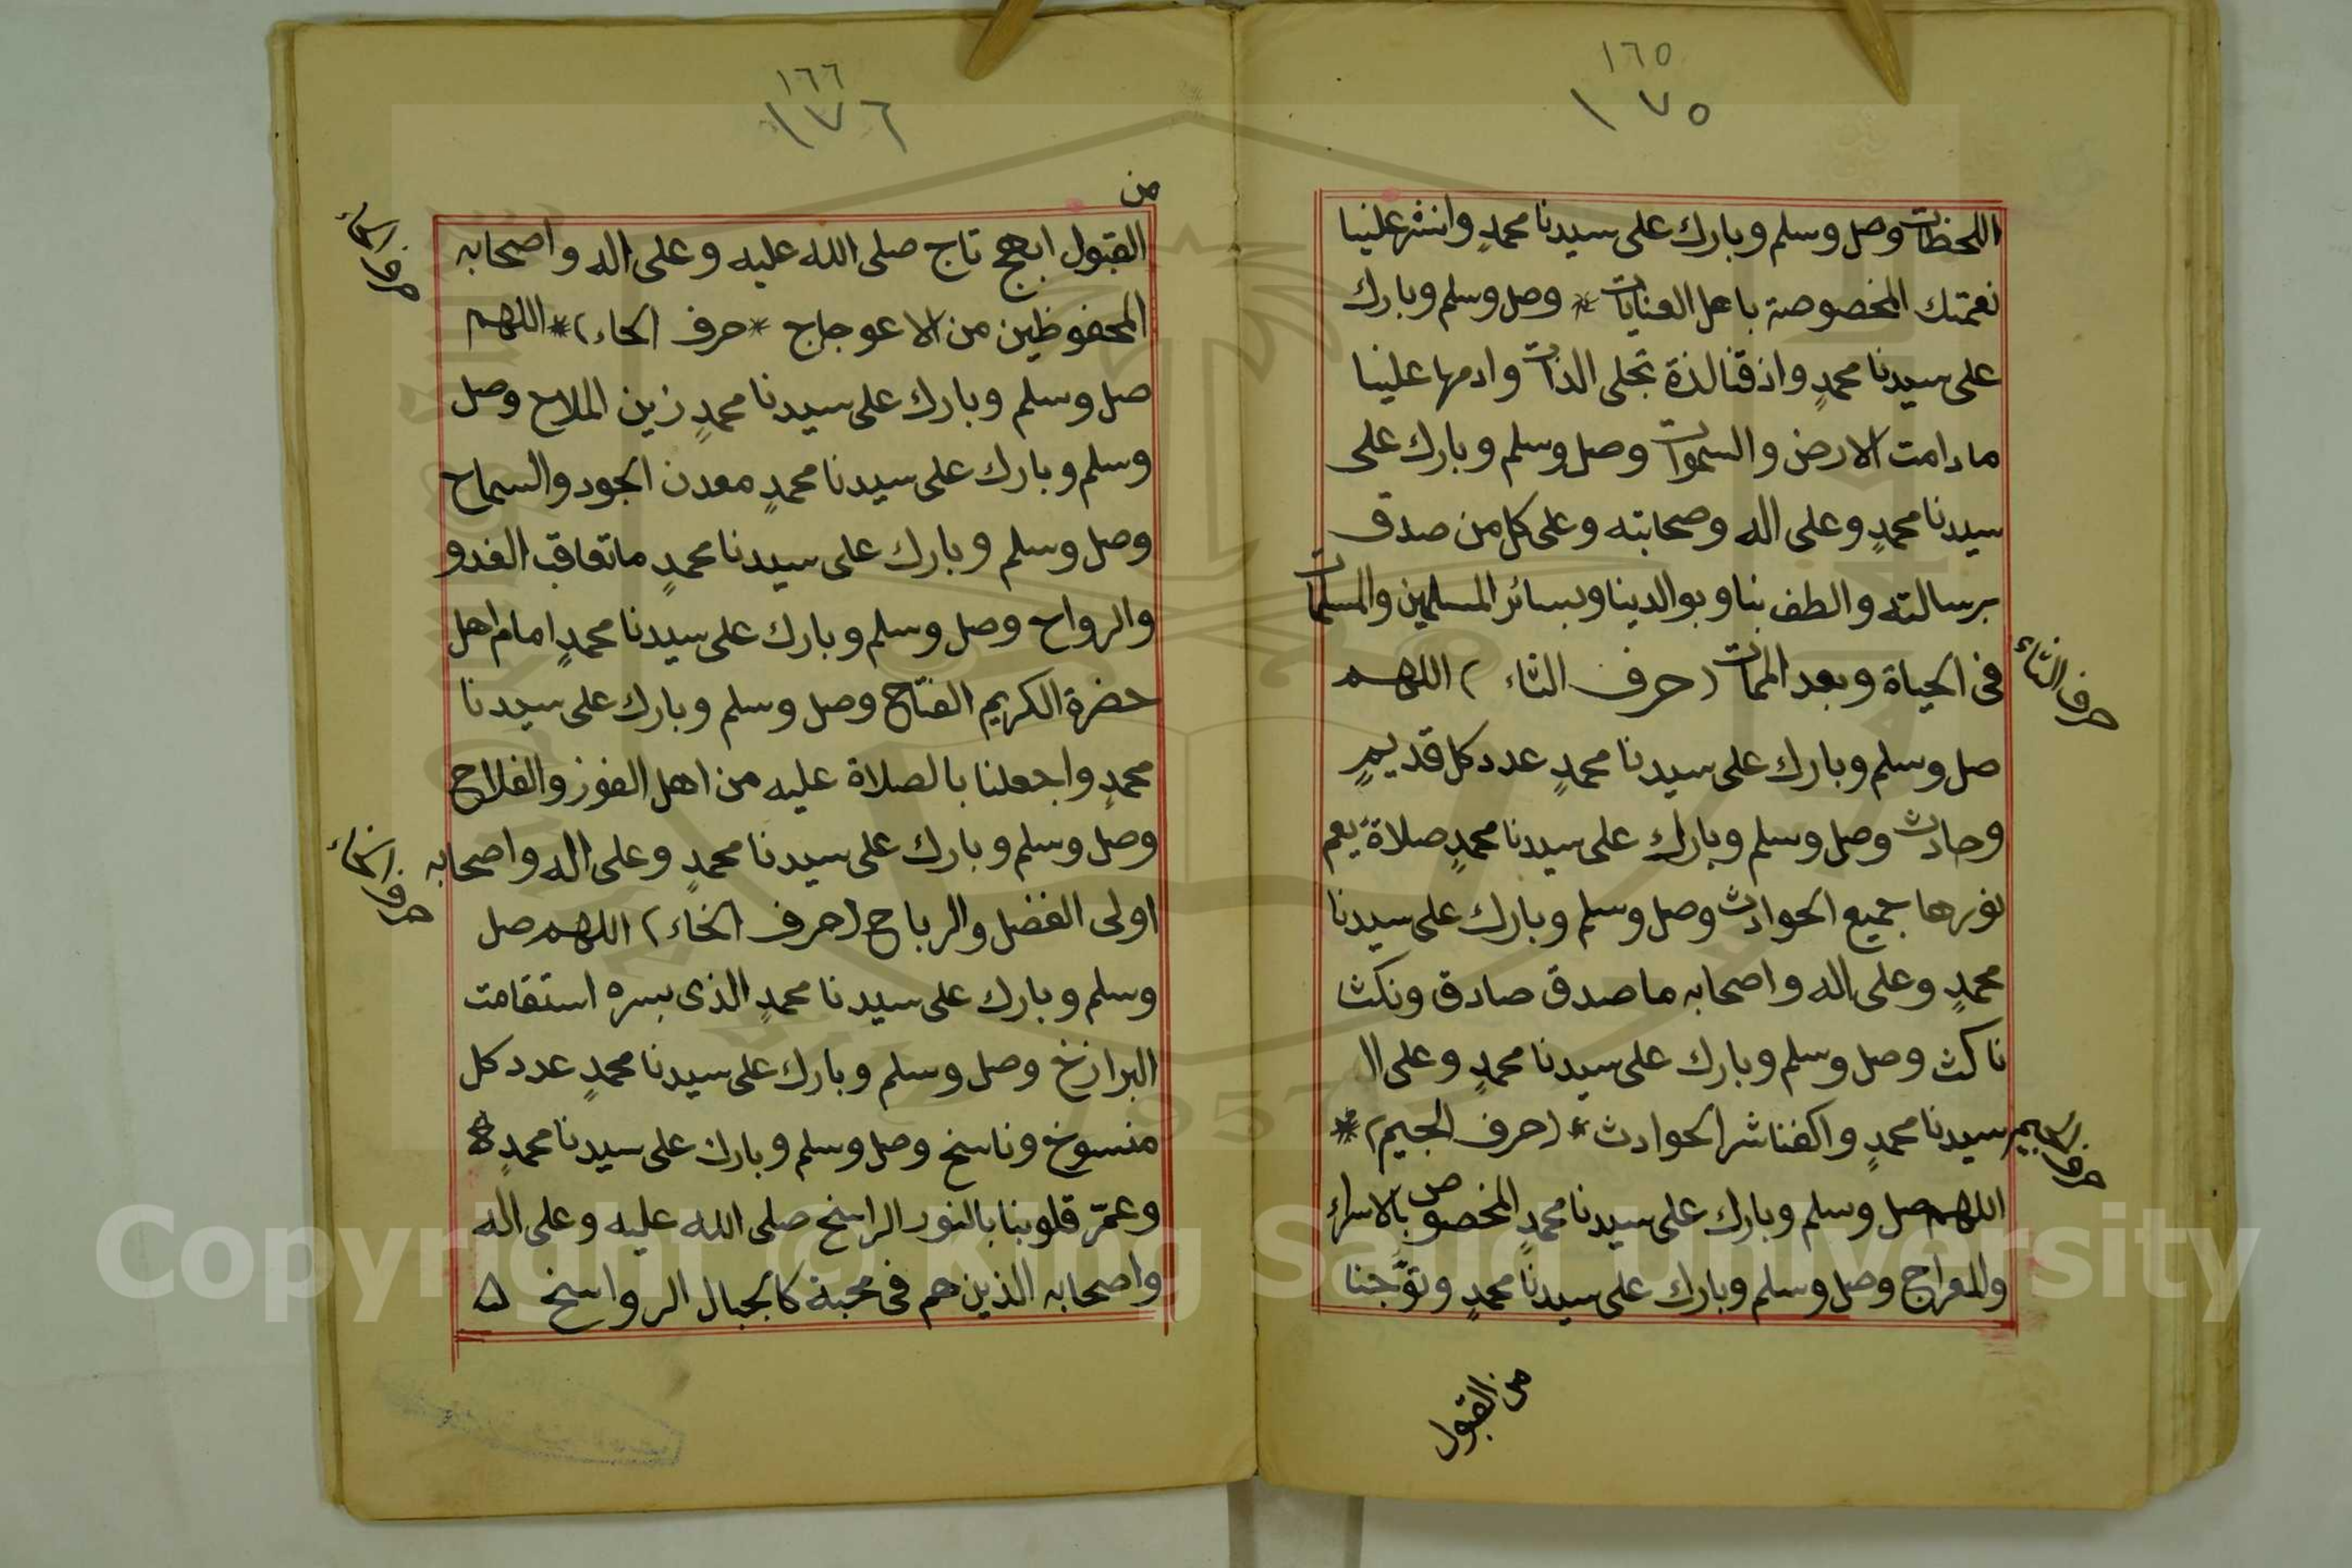 ١٦٥
١٧٥
اللحظات وصل وسلم وبارك على سيدنا محمدٍ وانشر علينا
نعمتك المخصوصة باهل العنايات * وصل وسلم وبارك
على سيدنا محمدٍ واذقنا لذة تجلى الذات وادمها علينا
مادامت الارض والسموات وصل وسلم وبارك على
سيدنا محمدٍ وعلى اله وصحابته وعلى كل من صدق
برسالته والطف بنا وبوالدينا وبسائر المسلمين والمسلمات
فى الحياة وبعد الممات (حرف الثاء) اللهم
حرف الثاء
صل وسلم وبارك على سيدنا محمدٍ عدد كل قديمٍ
وحادث وصل وسلم وبارك على سيدنا محمدٍ صلاة يعم
نورها جميع الحوادث وصل وسلم وبارك على سيدنا
محمدٍ وعلى اله واصحابه ما صدق صادق ونكث
ناكث وصل وسلم وبارك على سيدنا محمدٍ وعلى ال
سيدنا محمدٍ واكفنا شر الحوادث * (حرف الجيم) *
حرف الجيم
اللهم صل وسلم وبارك على سيدنا محمدٍ المخصوص بالاسراء
والمعراج وصل وسلم وبارك على سيدنا محمدٍ وتوّجنا
من القبول
١٦٦
١٧٦
من
القبول ابهج تاج صلى الله عليه وعلى اله واصحابه
المحفوظين من الاعوجاج * حرف الحاء) * اللهم
حرف الحاء
صل وسلم وبارك على سيدنا محمدٍ زين الملاح وصل
وسلم وبارك على سيدنا محمدٍ معدن الجود والسماح
وصل وسلم وبارك على سيدنا محمدٍ ما تعاقب الغدو
والرواح وصل وسلم وبارك على سيدنا محمدٍ امام اهل
حضرة الكريم الفتاح وصل وسلم وبارك على سيدنا
محمدٍ واجعلنا بالصلاة عليه من اهل الفوز والفلاح
وصل وسلم وبارك على سيدنا محمدٍ وعلى اله واصحابه
اولى الفضل والرباح (حرف الخاء) اللهم صل
حرف الخاء
وسلم وبارك على سيدنا محمدٍ الذى بسره استقامت
البرازخ وصل وسلم وبارك على سيدنا محمدٍ عدد كل
منسوخ وناسخ وصل وسلم وبارك على سيدنا محمدٍ
وعمّر قلوبنا بالنور الراسخ صلى الله عليه وعلى اله
واصحابه الذين هم فى محبة كالجبال الرواسخ
Copyright © King Saud University
1957